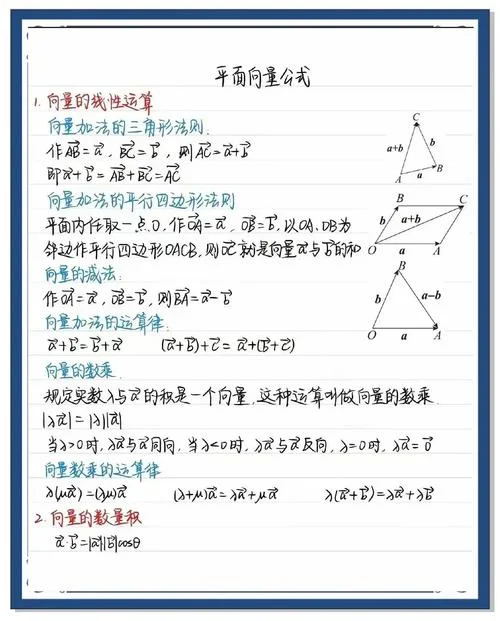 平面向量公式
1. 向量的线性运算
向量加法的三角形法则.
作AB⃗=a⃗，BC⃗=b⃗，则AC⃗=a⃗+b⃗
即a⃗+b⃗=AB⃗+BC⃗=AC⃗
C
a+b
b
A
a
B
向量加法的平行四边形法则
平面内任取一点O，作OA⃗=a⃗，OB⃗=b⃗，以OA、OB为
邻边作平行四边形OACB，则OC⃗就是向量a⃗与b⃗的和
B
C
b
a+b
O
a
A
向量的减法：
作OA⃗=a⃗，OB⃗=b⃗，则BA⃗=a⃗-b⃗
B
b
a-b
O
a
A
向量加法的运算律：
a⃗+b⃗=b⃗+a⃗ (a⃗+b⃗)+c⃗=a⃗+(b⃗+c⃗)
向量的数乘.
规定实数λ与a⃗的积是一个向量，这种运算叫做向量的数乘.
|λa⃗|=|λ||a⃗|
当λ>0时，λa⃗与a⃗同向，当λ<0时，λa⃗与a⃗反向，λ=0时，λa⃗=0⃗
向量数乘的运算律
λ(μa⃗)=(λμ)a⃗ (λ+μ)a⃗=λa⃗+μa⃗ λ(a⃗+b⃗)=λa⃗+λb⃗
2. 向量的数量积
a⃗·b⃗=|a⃗||b⃗|cosθ